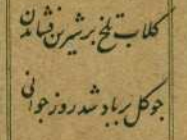 کلاب تلخ بر شیرین فشاندن
جو کل بر باد شد روز جوانی